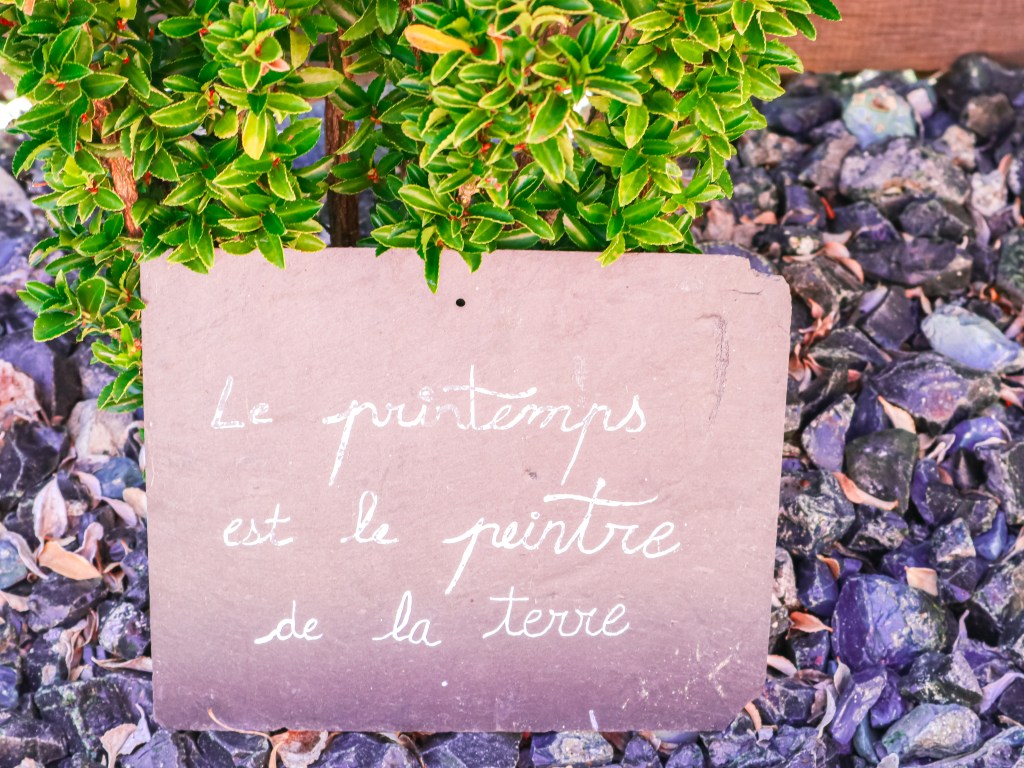 Le printemps
est le peintre
de la terre